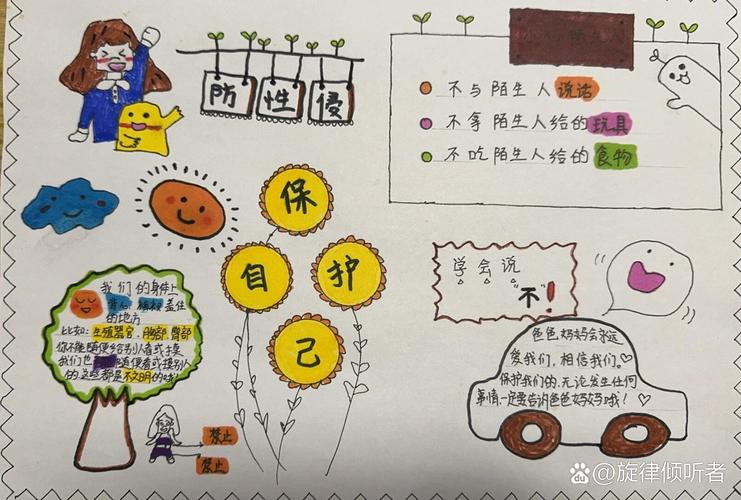 防性侵
陌生人
不与陌生人说话
不拿陌生人给的玩具
不吃陌生人给的食物
保
自 护
己
学会说
"不"!
我们的身体上
背心、 盖住
的地方
比如:生殖器官、胸部、臀部
你不能随便给别人看或摸
我们也 随便看或摸别人
的,这些都是不文明的哦!
禁止
禁止
爸爸妈妈会永远
爱我们,相信我们。♡
保护我们的,无论发生任何
事情一定要告诉爸爸妈妈哦!♡
Bai du @旋律倾听者